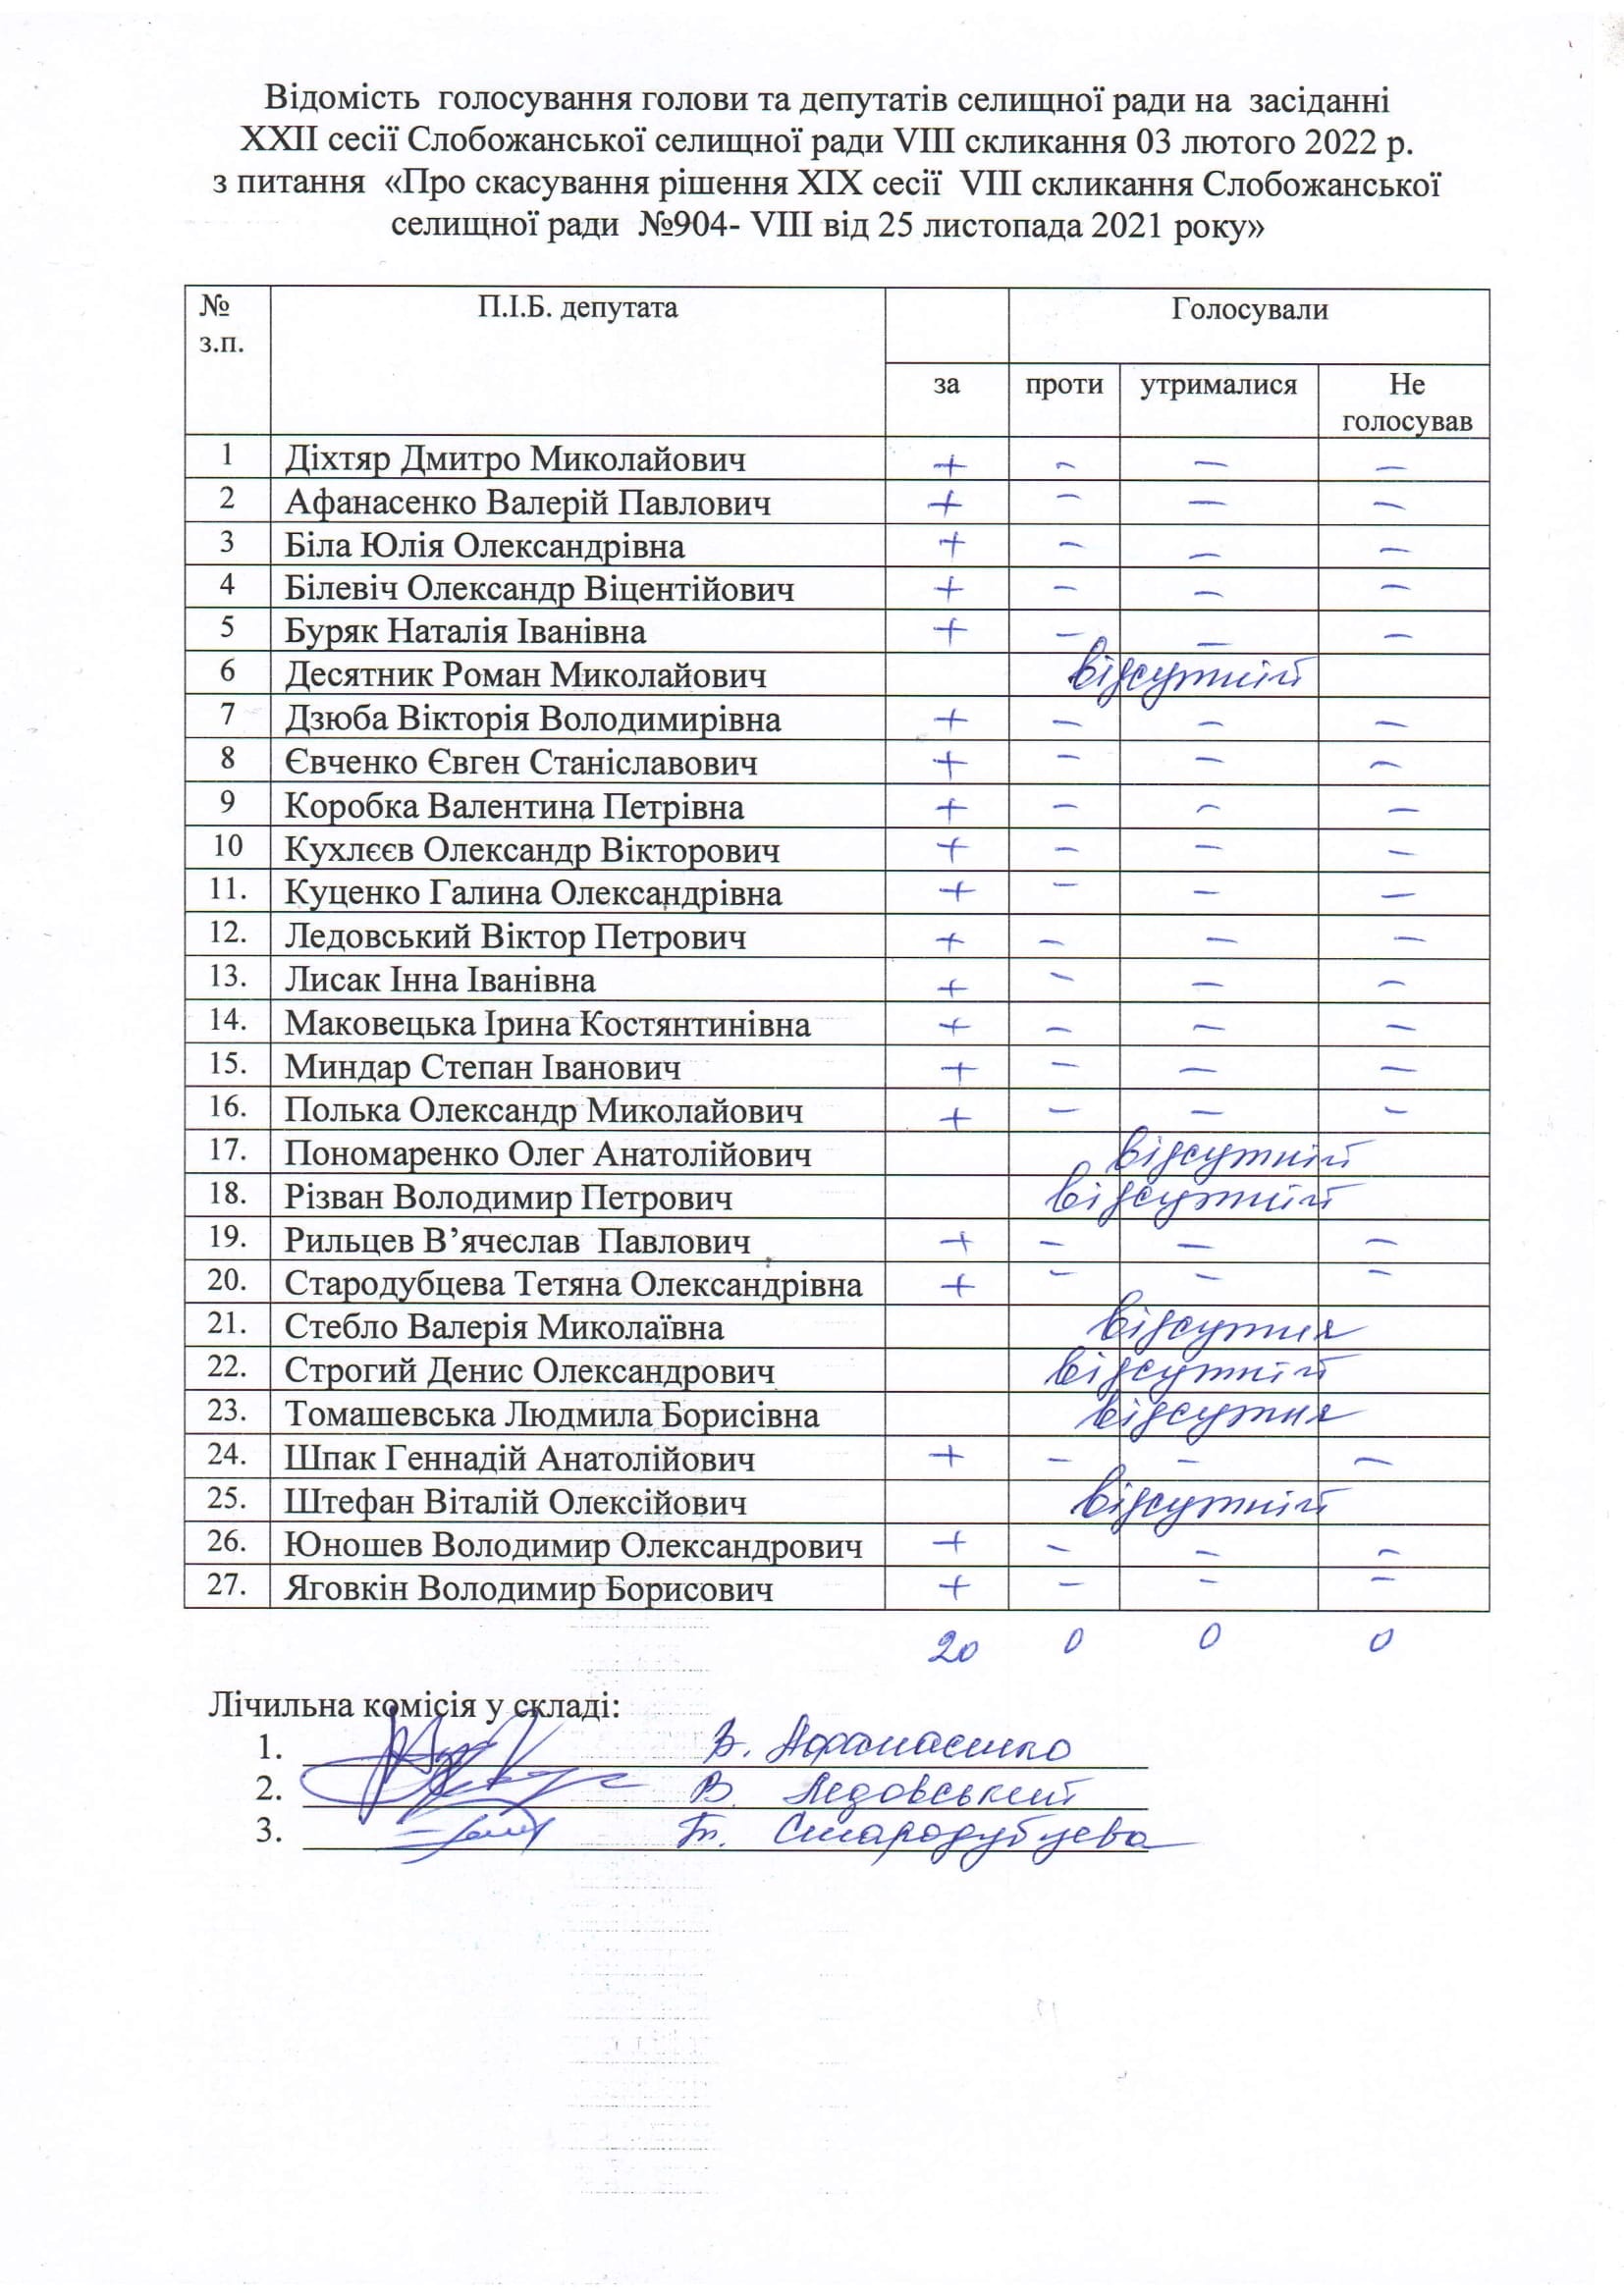 Відомість голосування голови та депутатів селищної ради на засіданні
XXII сесії Слобожанської селищної ради VIII скликання 03 лютого 2022 р.
з питання «Про скасування рішення XIX сесії VIII скликання Слобожанської
селищної ради №904- VIII від 25 листопада 2021 року»
№ з.п. П.І.Б. депутата Голосували
за проти утрималися Не голосував
1 Діхтяр Дмитро Миколайович + - - -
2 Афанасенко Валерій Павлович + - - -
3 Біла Юлія Олександрівна + - - -
4 Білевіч Олександр Віцентійович + - - -
5 Буряк Наталія Іванівна + - - -
6 Десятник Роман Миколайович відсутній
7 Дзюба Вікторія Володимирівна + - - -
8 Євченко Євген Станіславович + - - -
9 Коробка Валентина Петрівна + - - -
10 Кухлєєв Олександр Вікторович + - - -
11. Куценко Галина Олександрівна + - - -
12. Ледовський Віктор Петрович + - - -
13. Лисак Інна Іванівна + - - -
14. Маковецька Ірина Костянтинівна + - - -
15. Миндар Степан Іванович + - - -
16. Полька Олександр Миколайович + - - -
17. Пономаренко Олег Анатолійович відсутній
18. Різван Володимир Петрович відсутній
19. Рильцев В’ячеслав Павлович + - - -
20. Стародубцева Тетяна Олександрівна + - - -
21. Стебло Валерія Миколаївна відсутня
22. Строгий Денис Олександрович відсутній
23. Томашевська Людмила Борисівна відсутня
24. Шпак Геннадій Анатолійович + - - -
25. Штефан Віталій Олексійович відсутній
26. Юношев Володимир Олександрович + - - -
27. Яговкін Володимир Борисович + - - -
20 0 0 0
Лічильна комісія у складі:
1. В. Афанасенко
2. В. Ледовський
3. Т. Стародубцева